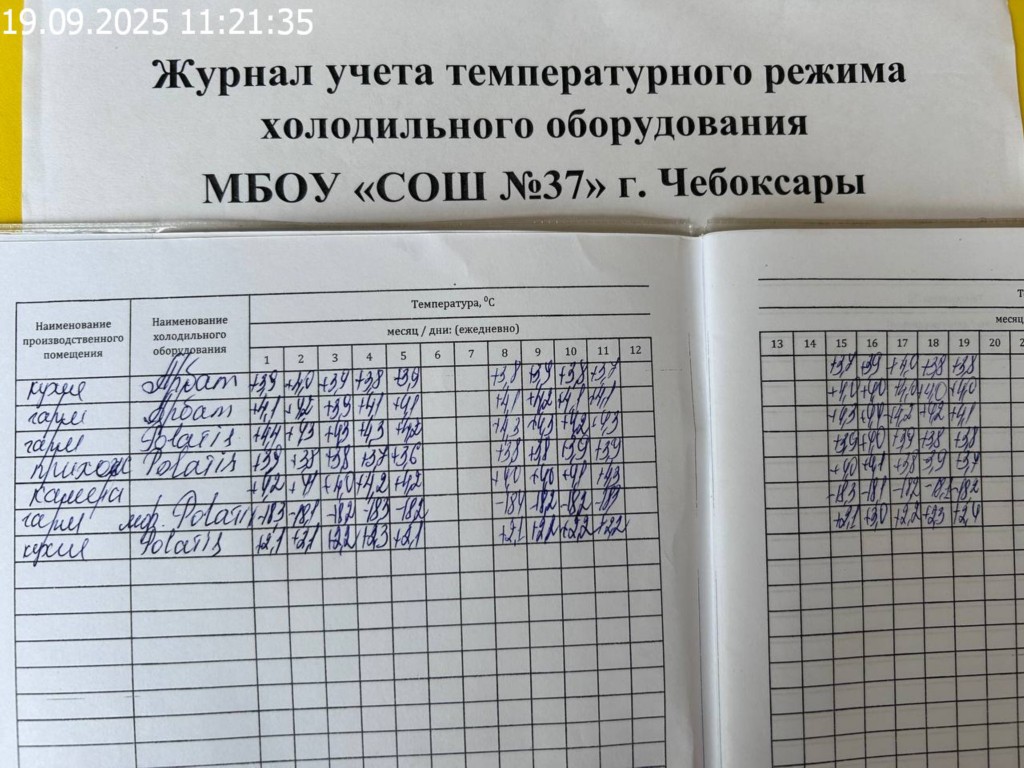 19.09.2025 11:21:35
Журнал учета температурного режима
холодильного оборудования
МБОУ «СОШ №37» г. Чебоксары
Наименование производственного помещения
Наименование холодильного оборудования
Температура, ⁰С
месяц / дни: (ежедневно)
1 2 3 4 5 6 7 8 9 10 11 12
Т
месяц
13 14 15 16 17 18 19 20 2
кухня Арбат +3,9 +4,0 +3,9 +3,8 +3,9 +3,8 +3,9 +3,8 +3,7 +3,7 +3,9 +4,0 +3,8 +3,8
Арбат +4,1 +4,2 +3,9 +4,1 +4,1 +4,1 +4,2 +4,1 +4,1 +4,0 +4,0 +4,0 +4,0 +4,0
Polaris +4,4 +4,3 +4,3 +4,3 +4,2 +4,3 +4,3 +4,2 +4,3 +4,3 +4,4 +4,2 +4,2 +4,1
Polaris +3,9 +3,8 +3,8 +3,7 +3,6 +3,8 +3,8 +3,9 +3,9 +3,9 +4,0 +3,9 +3,8 +3,8
камера +4,2 +4,0 +4,2 +4,2 +4,0 +4,0 +4,1 +4,3 +4,0 +4,1 +3,8 3,9 +3,7
Polaris -18,3 -18,1 -18,2 -18,3 -18,2 -18,4 -18,2 -18,2 -18,3 -18,1 -18,2 -18,2 -18,2
кухня Polaris +2,1 +2,1 +2,2 +2,3 +2,1 +2,1 +2,2 +2,2 +2,2 +2,1 +3,0 +2,2 +2,3 +2,4